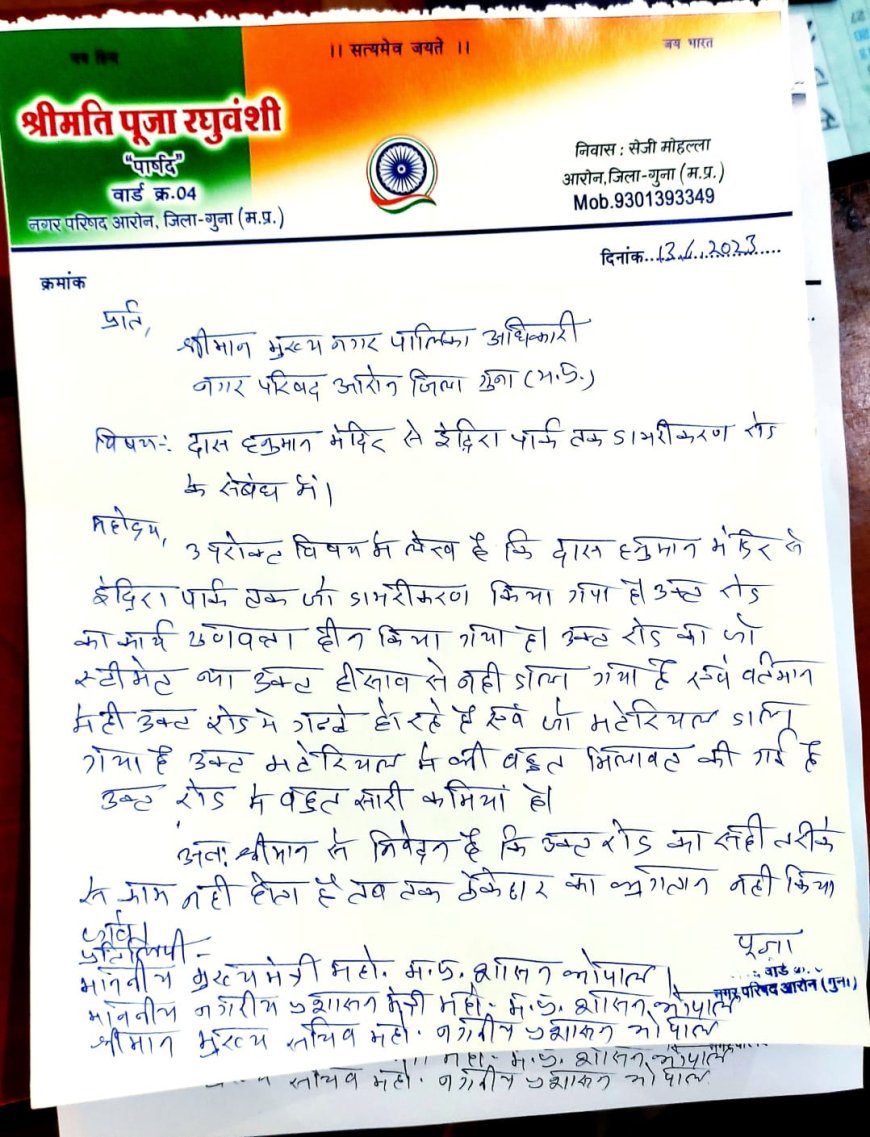 जय हिन्द
।। सत्यमेव जयते ।।
जय भारत
श्रीमति पूजा रघुवंशी
"पार्षद"
वार्ड क्र.04
नगर परिषद आरोन, जिला-गुना (म.प्र.)
निवास : सेजी मोहल्ला
आरोन,जिला-गुना (म.प्र.)
Mob.9301393349
दिनांक...13.....2023....
क्रमांक
प्रति,
श्रीमान मुख्य नगर पालिका अधिकारी
नगर परिषद आरोन जिला गुना (म.प्र.)
विषय:- दास हनुमान मंदिर से इंदिरा पार्क तक डामरीकरण रोड
के संबंध में।
महोदय,
उपरोक्ट विषय मे लेख है कि दास हनुमान मंदिर से
इंदिरा पार्क तक जो डामरीकरण किया गया है। उक्ट रोड
का कार्य गुणवत्ता हीन किया गया है। उक्ट रोड का जो
स्टीमेट था उक्ट हीसाव से नही डाला गया है एवं वर्तमान
मे ही उक्ट रोड मे गढढे हो रहे है एवं जो मटेरियल डाला
गया है उक्ट मटेरियल मे भी बहुत मिलावट की गई है
उक्ट रोड मे बहुत सारी कमियां है।
अतः श्रीमान से निवेदन है कि उक्ट रोड का सही तरीके
से काम नही होता है तब तक ठेकेदार का भुगतान नही किया
जावे।
प्रतिलिपी -
पूजा
माननीय मुख्यमंत्री महो. म.प्र. शासन भोपाल।
वार्ड
नगर परिषद आरोन (गुना)
माननीय नगरीय प्रशासन मंत्री महो. म.प्र. शासन भोपाल
श्रीमान मुख्य सचिव महो. नगरीय प्रशासन भोपाल
महो. म.प्र. शासन भोपाल
सचिव महो. नगरीय प्रशासन भोपाल